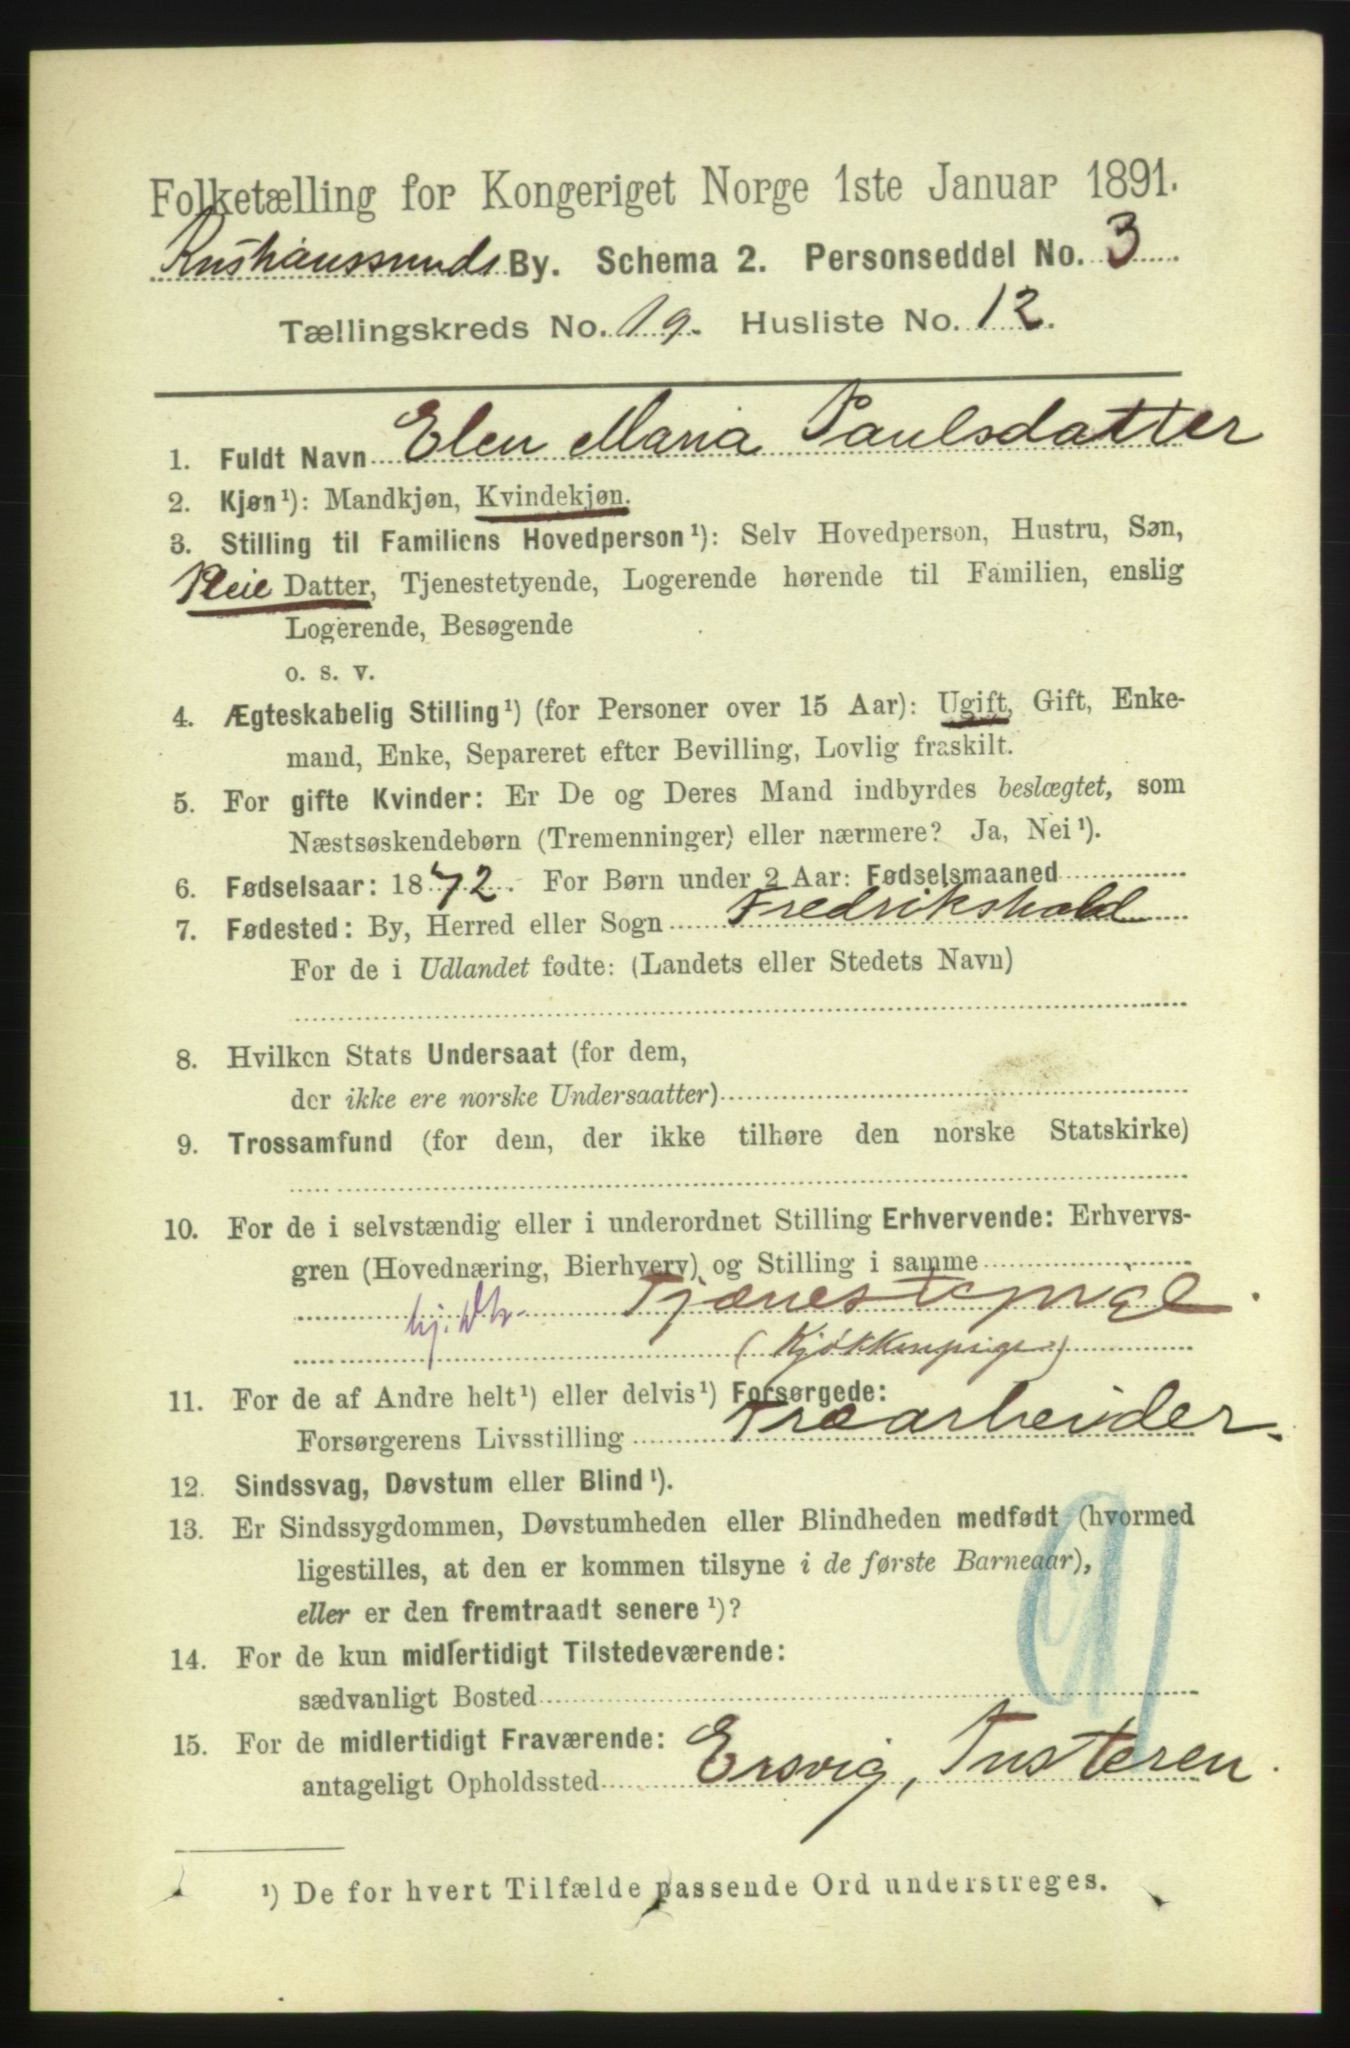 Folketælling for Kongeriget Norge 1ste Januar 1891.
Kristianssunds By. Schema 2. Personseddel No. 3
Tællingskreds No. 19. Husliste No. 12.
1. Fuldt Navn Elen Maria Paulsdatter
2. Kjøn¹): Mandkjøn, Kvindekjøn.
3. Stilling til Familiens Hovedperson¹): Selv Hovedperson, Hustru, Søn,
Pleie Datter, Tjenestetyende, Logerende hørende til Familien, enslig
Logerende, Besøgende
o. s. v.
4. Ægteskabelig Stilling¹) (for Personer over 15 Aar): Ugift, Gift, Enke-
mand, Enke, Separeret efter Bevilling, Lovlig fraskilt.
5. For gifte Kvinder: Er De og Deres Mand indbyrdes beslægtet, som
Næstsøskendebørn (Tremenninger) eller nærmere? Ja, Nei¹).
6. Fødselsaar: 1872. For Børn under 2 Aar: Fødselsmaaned
7. Fødested: By, Herred eller Sogn Fredrikshald
For de i Udlandet fødte: (Landets eller Stedets Navn)
8. Hvilken Stats Undersaat (for dem,
der ikke ere norske Undersaatter)
9. Trossamfund (for dem, der ikke tilhøre den norske Statskirke)
10. For de i selvstændig eller i underordnet Stilling Erhvervende: Erhvervs-
gren (Hovednæring, Bierhverv) og Stilling i samme
hj. Dtr Tjænestepige.
(Kjøkkenpige)
11. For de af Andre helt¹) eller delvis¹) Forsørgede:
Forsørgerens Livsstilling Træarbeider.
12. Sindssvag, Døvstum eller Blind¹).
13. Er Sindssygdommen, Døvstumheden eller Blindheden medfødt (hvormed
ligestilles, at den er kommen tilsyne i de første Barneaar),
eller er den fremtraadt senere¹)?
14. For de kun midlertidigt Tilstedeværende:
sædvanligt Bosted
15. For de midlertidigt Fraværende:
antageligt Opholdssted Ersvig, Tusteren.
¹) De for hvert Tilfælde passende Ord understreges.